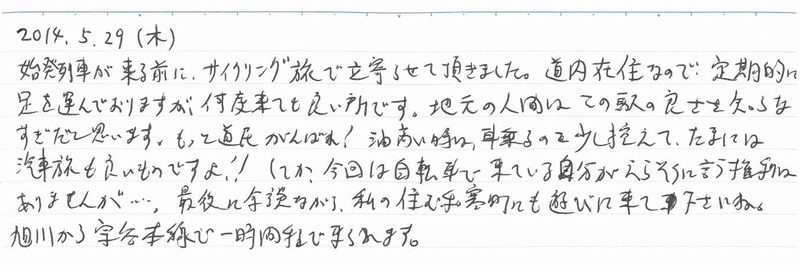 2014.5.29 (木)
始発列車が来る前に、サイクリング旅で立寄らせて頂きました。道内在住なので、定期的に
足を運んでおりますが、何度来ても良い所です。地元の人間はこの駅の良さを知らな
すぎだと思います。もっと道民がんばれ! 油高い時は、車乗るのを少し控えて、たまには
汽車旅も良いものですよ!! てか、今回は自転車で来ている自分がえらそうに言う権利は
ありませんが…。最後に余談ながら、私の住む和寒町にも遊びに来て下さいね。
旭川から宗谷本線で一時間程で来られます。